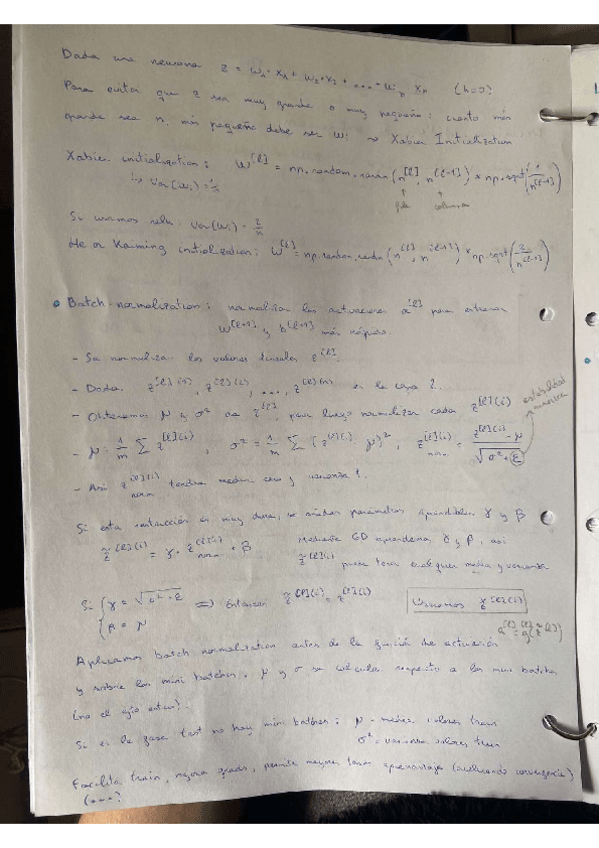 Dada una neurona z = w₁·x₁ + w₂·x₂ + ... + wₙ xₙ (b=0)
Para evitar que z sea muy grande o muy pequeño: cuanto más
grande sea n, más pequeño debe ser wᵢ → Xabier Initialization
Xabier initialization: W^[l] = np.random.randn(n^[l], n^[l-1]) * np.sqrt(1/n^[l-1])
↳ Var(wᵢ) = 1/n
fila columna
Si usamos relu: Var(wᵢ) = 2/n
He or Kaiming initialization: W^[l] = np.random.randn(n^[l], n^[l-1]) * np.sqrt(2/n^[l-1])
• Batch-normalization: normalizar las activaciones a^[l] para entrenar
W^[l+1] y b^[l+1] más rápido.
- Se normalizan los valores lineales z^[l].
- Dados z^[l](1), z^[l](2), ..., z^[l](n) en la capa l.
- Obtenemos μ y σ² de z^[l], para luego normalizar cada z^[l](i)
estabilidad numérica
- μ = 1/m Σ z^[l](i), σ² = 1/m Σ (z^[l](i) - μ)², z^[l](i) norm = (z^[l](i) - μ)/√(σ² + ε)
- Así z^[l](i) norm tendrá media cero y varianza 1.
Si esta restricción es muy dura, se añaden parámetros aprendibles γ y β
z̃^[l](i) = γ · z^[l](i) norm + β Mediante GD aprendemos γ y β, así
z̃^[l](i) puede tener cualquier media y varianza
Si { γ = √(σ² + ε) ⇒ Entonces z̃^[l](i) = z^[l](i) Usamos z̃^[l](i)
β = μ
a^[l] = g(z̃^[l])
Aplicamos batch normalization antes de la función de activación
y sobre los mini batches. μ y σ se calculan respecto a los mini batches
(no el entero).
Si es la fase test no hay mini batches: μ = media valores train
σ² = varianza valores train
Facilita train, mejora grads, permite mayores tasas aprendizaje (acelerando convergencia)
(...)